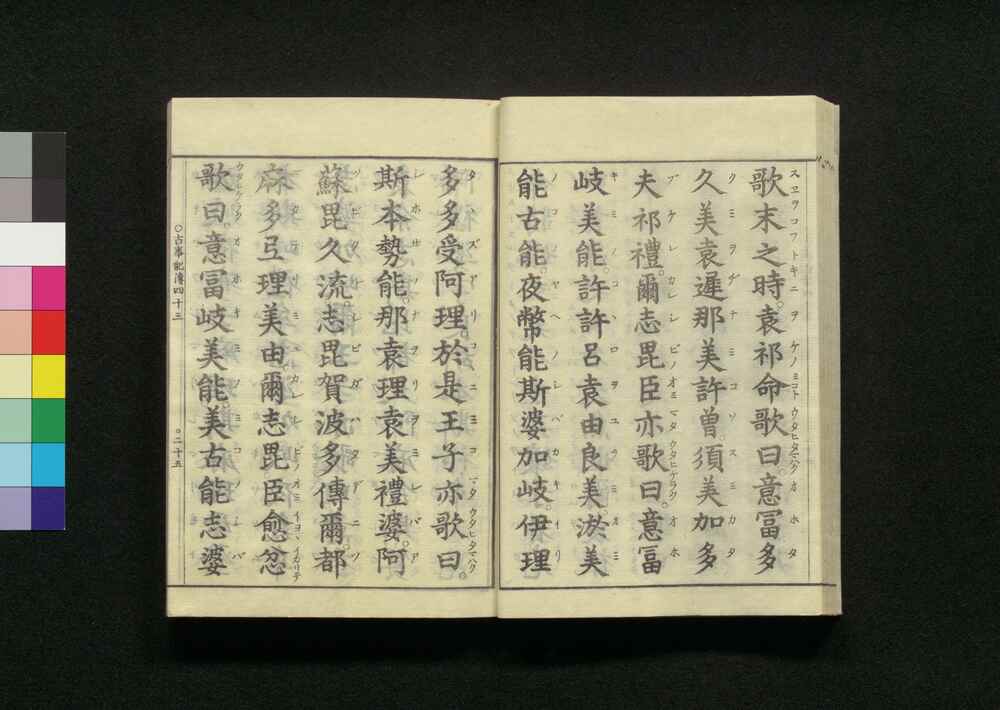 歌末之時。袁祁命歌曰。意冨多
久美袁遲那美許曾。須美加多
夫祁禮。爾志毘臣亦歌曰。意冨
岐美能。許許呂袁由良美。淤美
能古能。夜幣能斯婆加岐。伊理
多多受阿理。於是王子亦歌曰。
斯本勢能。那袁理袁美禮婆。阿
蘇毘久流。志毘賀波多傳爾。都
麻多弖理美由。爾志毘臣愈忿
歌曰。意冨岐美能。美古能志婆
○古事記傳四十三　○二十五